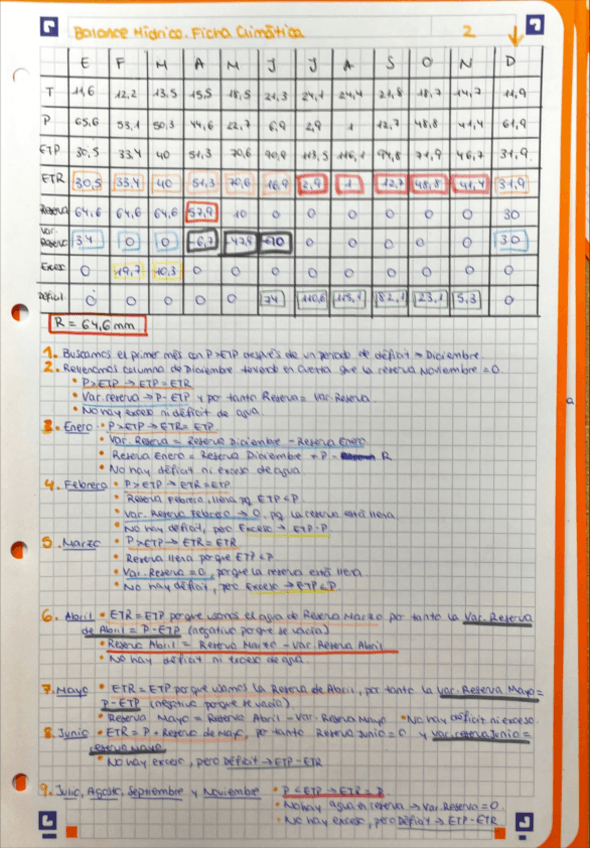 Balance Hídrico. Ficha Climática 2
E F M A M J J A S O N D
T 11,6 12,2 13,5 15,5 18,5 21,3 24,1 24,4 21,8 18,7 14,7 11,9
P 65,6 53,1 50,3 44,6 22,7 6,9 2,9 1 12,7 48,8 41,4 61,9
ETP 30,5 33,4 40 51,3 70,6 90,9 113,5 116,1 94,8 71,9 46,7 31,9
ETR 30,5 33,4 40 51,3 70,6 16,9 2,9 1 12,7 48,8 41,4 31,9
Reserva 64,6 64,6 64,6 57,9 10 0 0 0 0 0 0 30
Var. Reserva 34 0 0 -6,7 -47,9 -10 0 0 0 0 0 30
Exceso 0 19,7 10,3 0 0 0 0 0 0 0 0 0
Déficit 0 0 0 0 0 74 110,6 115,1 82,1 23,1 5,3 0
R = 64,6 mm
1. Buscamos el primer mes con P>ETP después de un periodo de déficit → Diciembre.
2. Rellenamos columna de Diciembre teniendo en cuenta que la reserva Noviembre = 0.
• P>ETP → ETP = ETR
• Var. reserva → P - ETP y por tanto Reserva = Var. Reserva
• No hay exceso ni déficit de agua.
3. Enero • P>ETP → ETR = ETP
• Var. Reserva = Reserva Diciembre - Reserva Enero
• Reserva Enero = Reserva Diciembre + P - R
• No hay déficit ni exceso de agua.
4. Febrero • P>ETP → ETR = ETP
• Reserva Febrero, llena pq ETP<P.
• Var. Reserva Febrero → 0, pq la reserva está llena.
• No hay déficit, pero Exceso → ETP-P.
5. Marzo • P>ETP → ETR = ETR
• Reserva llena porque ETP<P.
• Var. Reserva = 0, porque la reserva está llena.
• No hay déficit, pero Exceso → ETP<P.
6. Abril • ETR = ETP porque usamos el agua de Reserva Marzo por tanto la Var. Reserva
de Abril = P-ETP (negativo porque se vacía)
• Reserva Abril = Reserva Marzo - Var. Reserva Abril
• No hay déficit ni exceso de agua.
7. Mayo • ETR = ETP porque usamos la Reserva de Abril, por tanto la Var. Reserva Mayo =
P-ETP (negativo porque se vacía)
• Reserva Mayo = Reserva Abril - Var. Reserva Mayo • No hay déficit ni exceso.
8. Junio • ETR = P + Reserva de Mayo, por tanto Reserva Junio = 0 y var. reserva Junio =
reserva Mayo
• No hay exceso, pero Déficit → ETP-ETR
9. Julio, Agosto, Septiembre y Noviembre • P<ETP → ETR = P
• No hay agua en reserva → Var. Reserva = 0.
• No hay exceso, pero Déficit → ETP-ETR